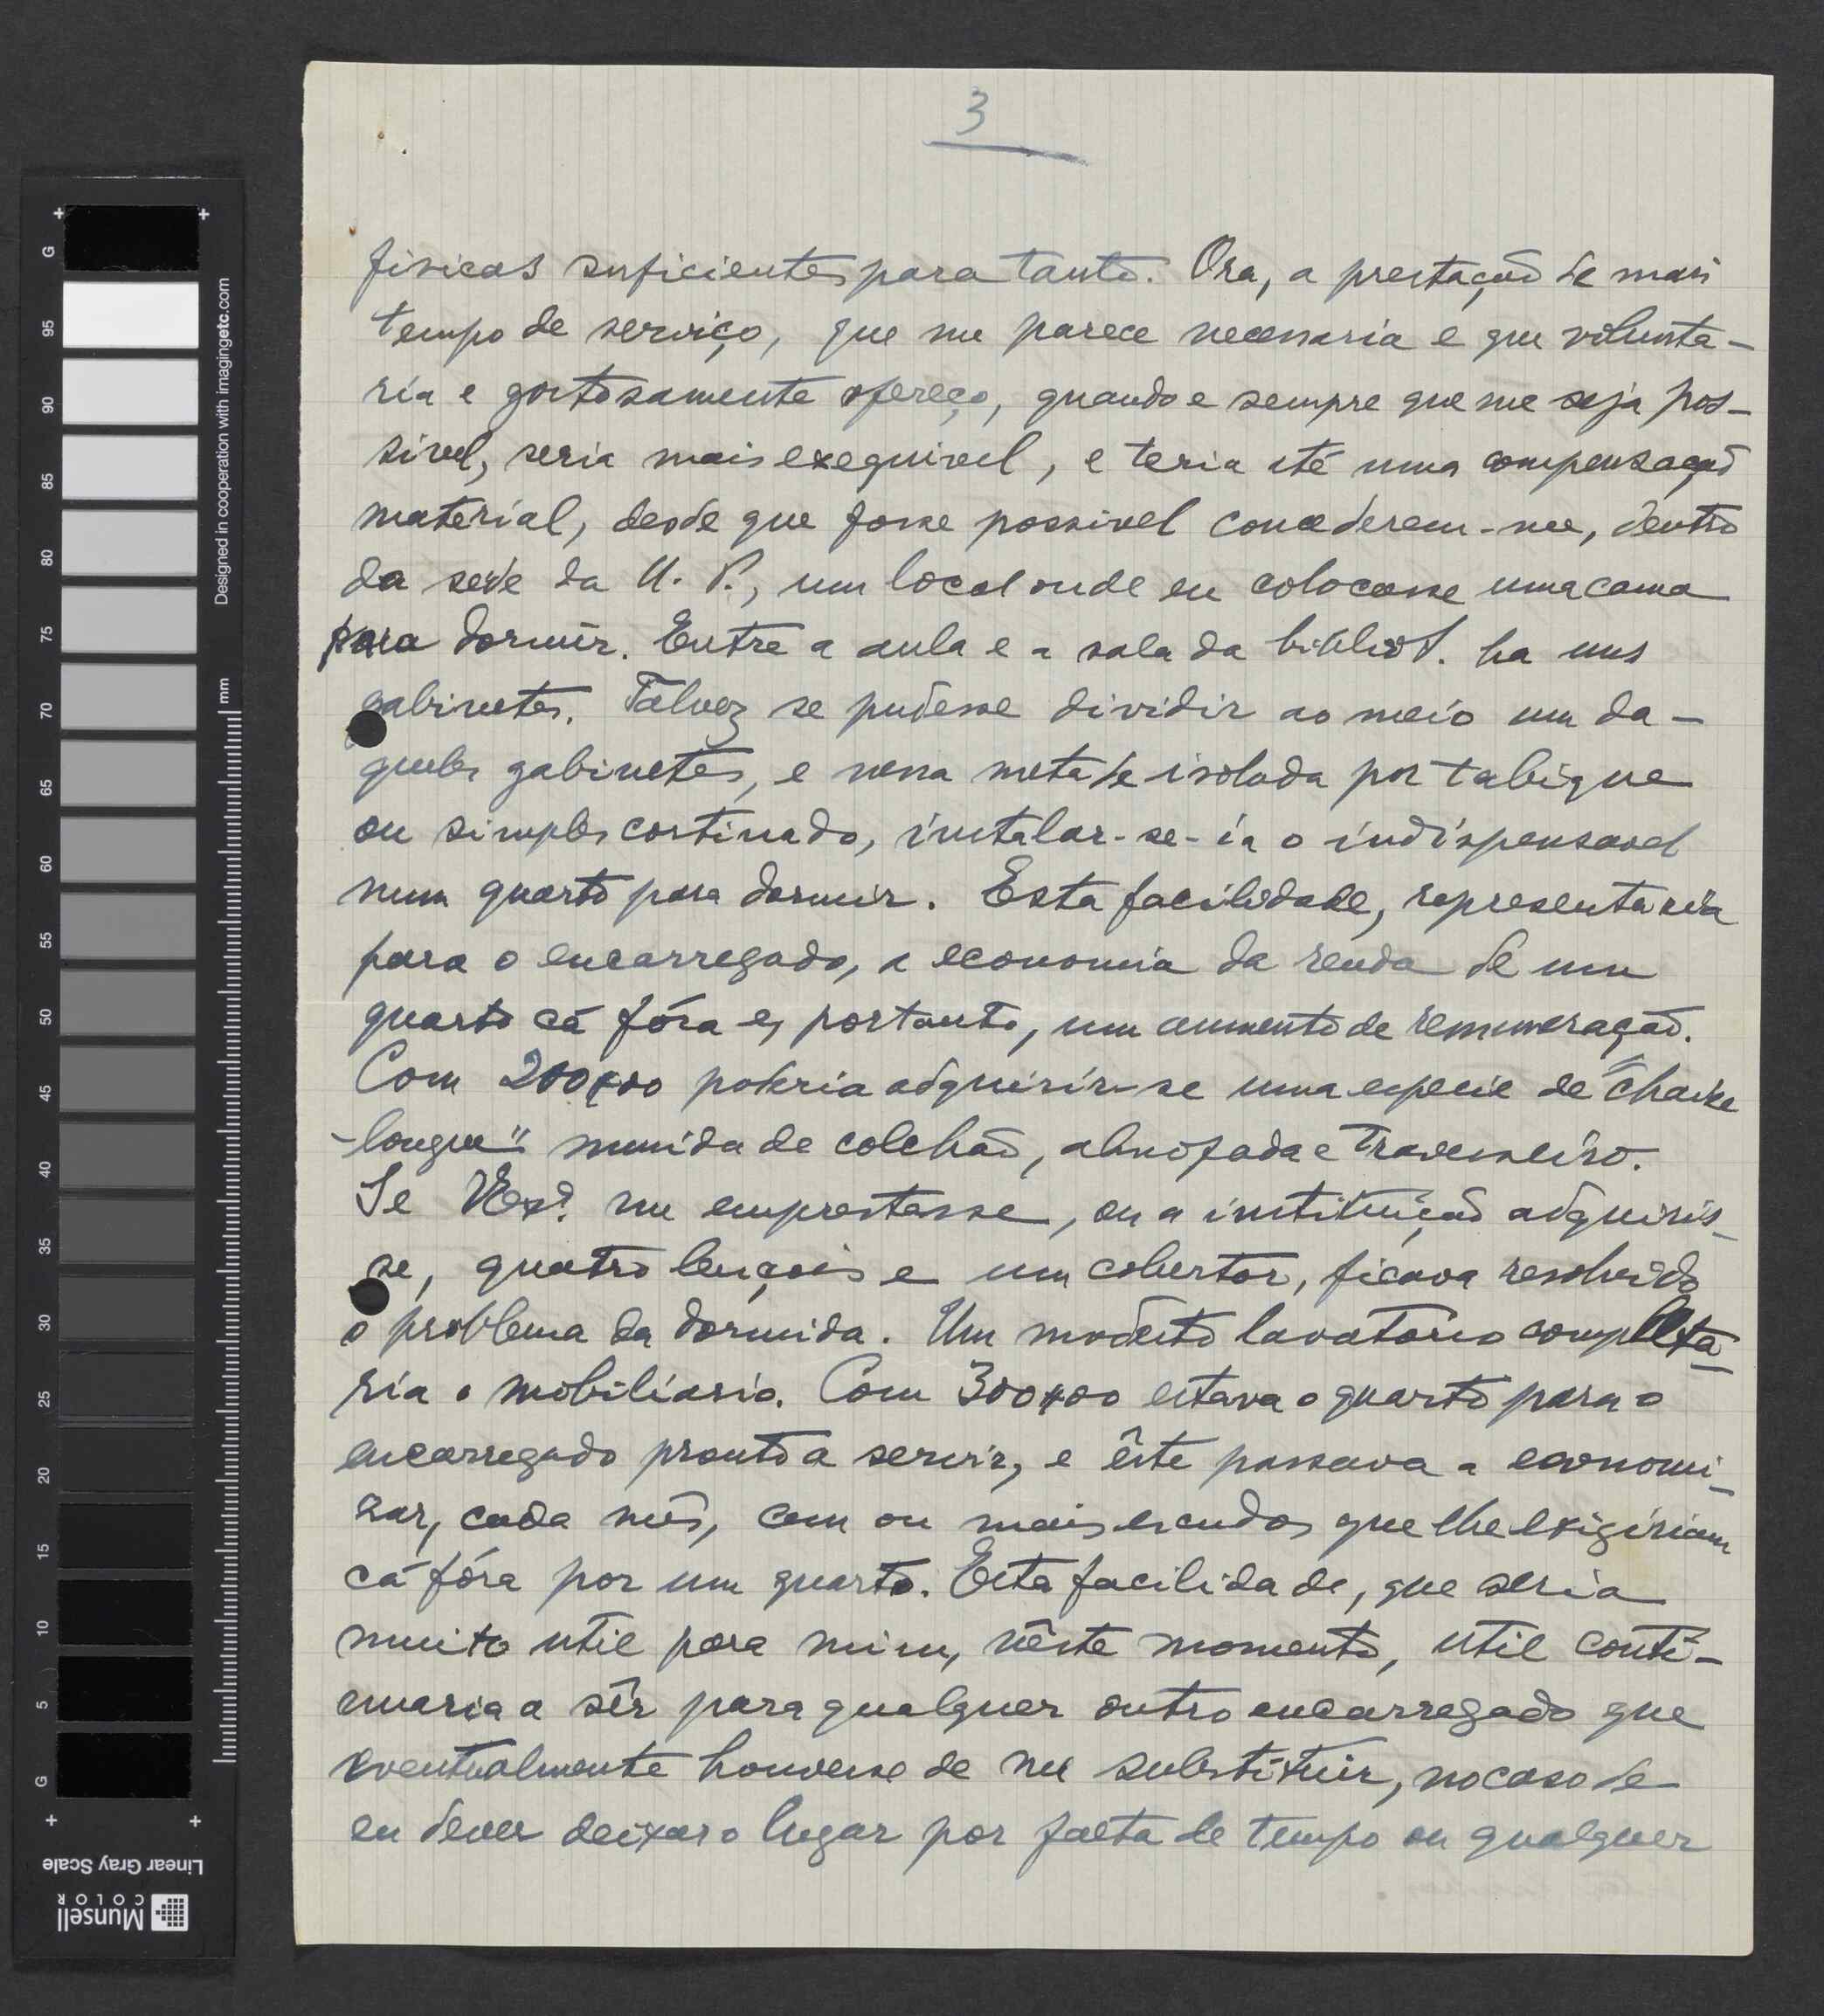 3
fisicas suficientes para tanto. Ora, a prestação de mais
tempo de serviço, que me parece necessaria e que volunta-
ria e gostosamente ofereço, quando e sempre que me seja pos-
sivel, seria mais exequivel, e teria até uma compensação
material, desde que fosse possivel concederem-me, dentro
da sede da U. P., um local onde eu colocasse uma cama
para dormir. Entre a aula e a sala da bibliot. ha uns
gabinetes. Talvez se pudesse dividir ao meio um da-
queles gabinetes, e nessa metade isolada por tabique
ou simples cortinado, instalar-se-ia o indispensavel
num quarto para dormir. Esta facilidade, representaria
para o encarregado, a economia da renda de um
quarto cá fóra e, portanto, um aumento de remuneração.
Com 200$00 poderia adquirir-se uma especie de "chaise
-longue" munida de colchão, almofada e travesseiro.
Se V.Exª. me emprestasse, ou a instituição adquiris-
se, quatro lençois e um cobertor, ficava resolvido
o problema da dormida. Um modesto lavatório completa-
ria o mobiliario. Com 300$00 estava o quarto para o
encarregado pronto a servir, e êste passava a economi-
zar, cada mês, cem ou mais escudos que lhe exigiriam
cá fóra por um quarto. Esta facilidade, que seria
muito util para mim, nêste momento, util conti-
nuaria a sêr para qualquer outro encarregado que
eventualmente houvesse de me substituir, no caso de
eu dever deixar o lugar por falta de tempo ou qualquer
Designed in cooperation with imagingetc.com
mm
G
95
90
85
80
75
70
65
60
55
50
45
40
35
30
25
20
15
10
5
G
Linear Gray Scale
Munsell
COLOR